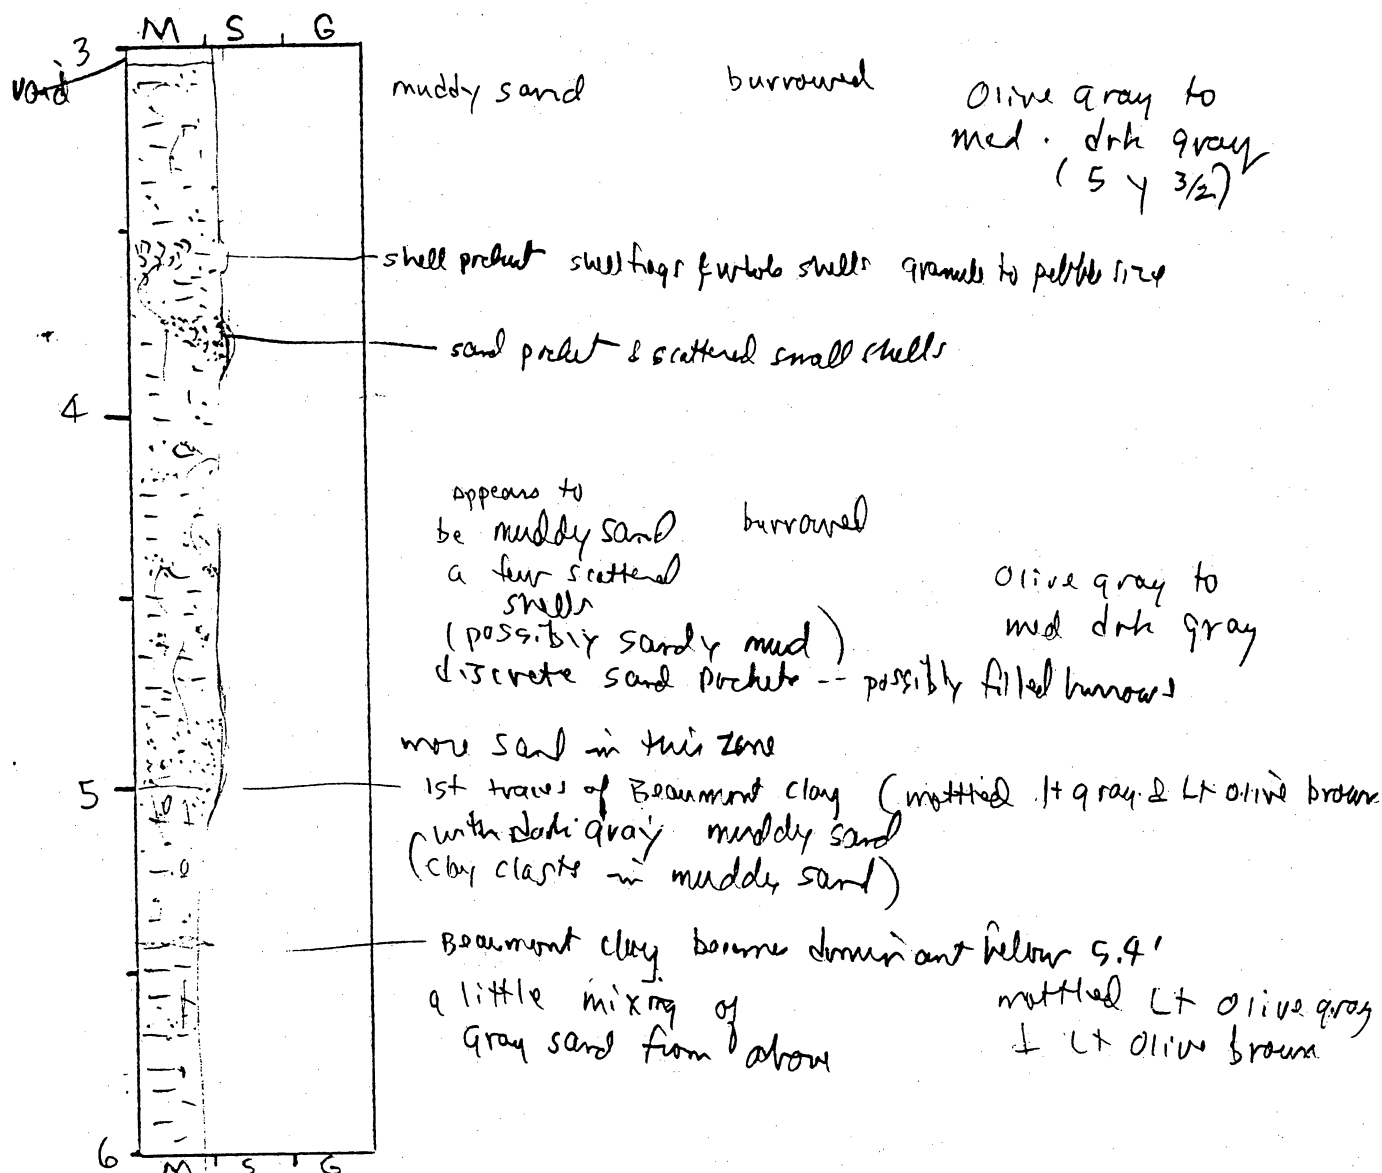 M S G
3
void
muddy sand burrowed Olive gray to
med. drk gray
(5 Y 3/2)
shell pocket shell frags & whole shells granule to pebble size
sand pocket & scattered small shells
4
appears to
be muddy sand burrowed
a few scattered
shells
Olive gray to
med drk gray
(possibly sandy mud)
discrete sand pockets -- possibly filled burrows
more sand in this zone
5
1st traces of Beaumont clay (mottled lt gray & Lt olive brown
with dark gray muddy sand
(clay clasts in muddy sand)
Beaumont clay becomes dominant below 5.4'
a little mixing of
gray sand from above
mottled Lt olive gray
& Lt olive brown
6
M S G